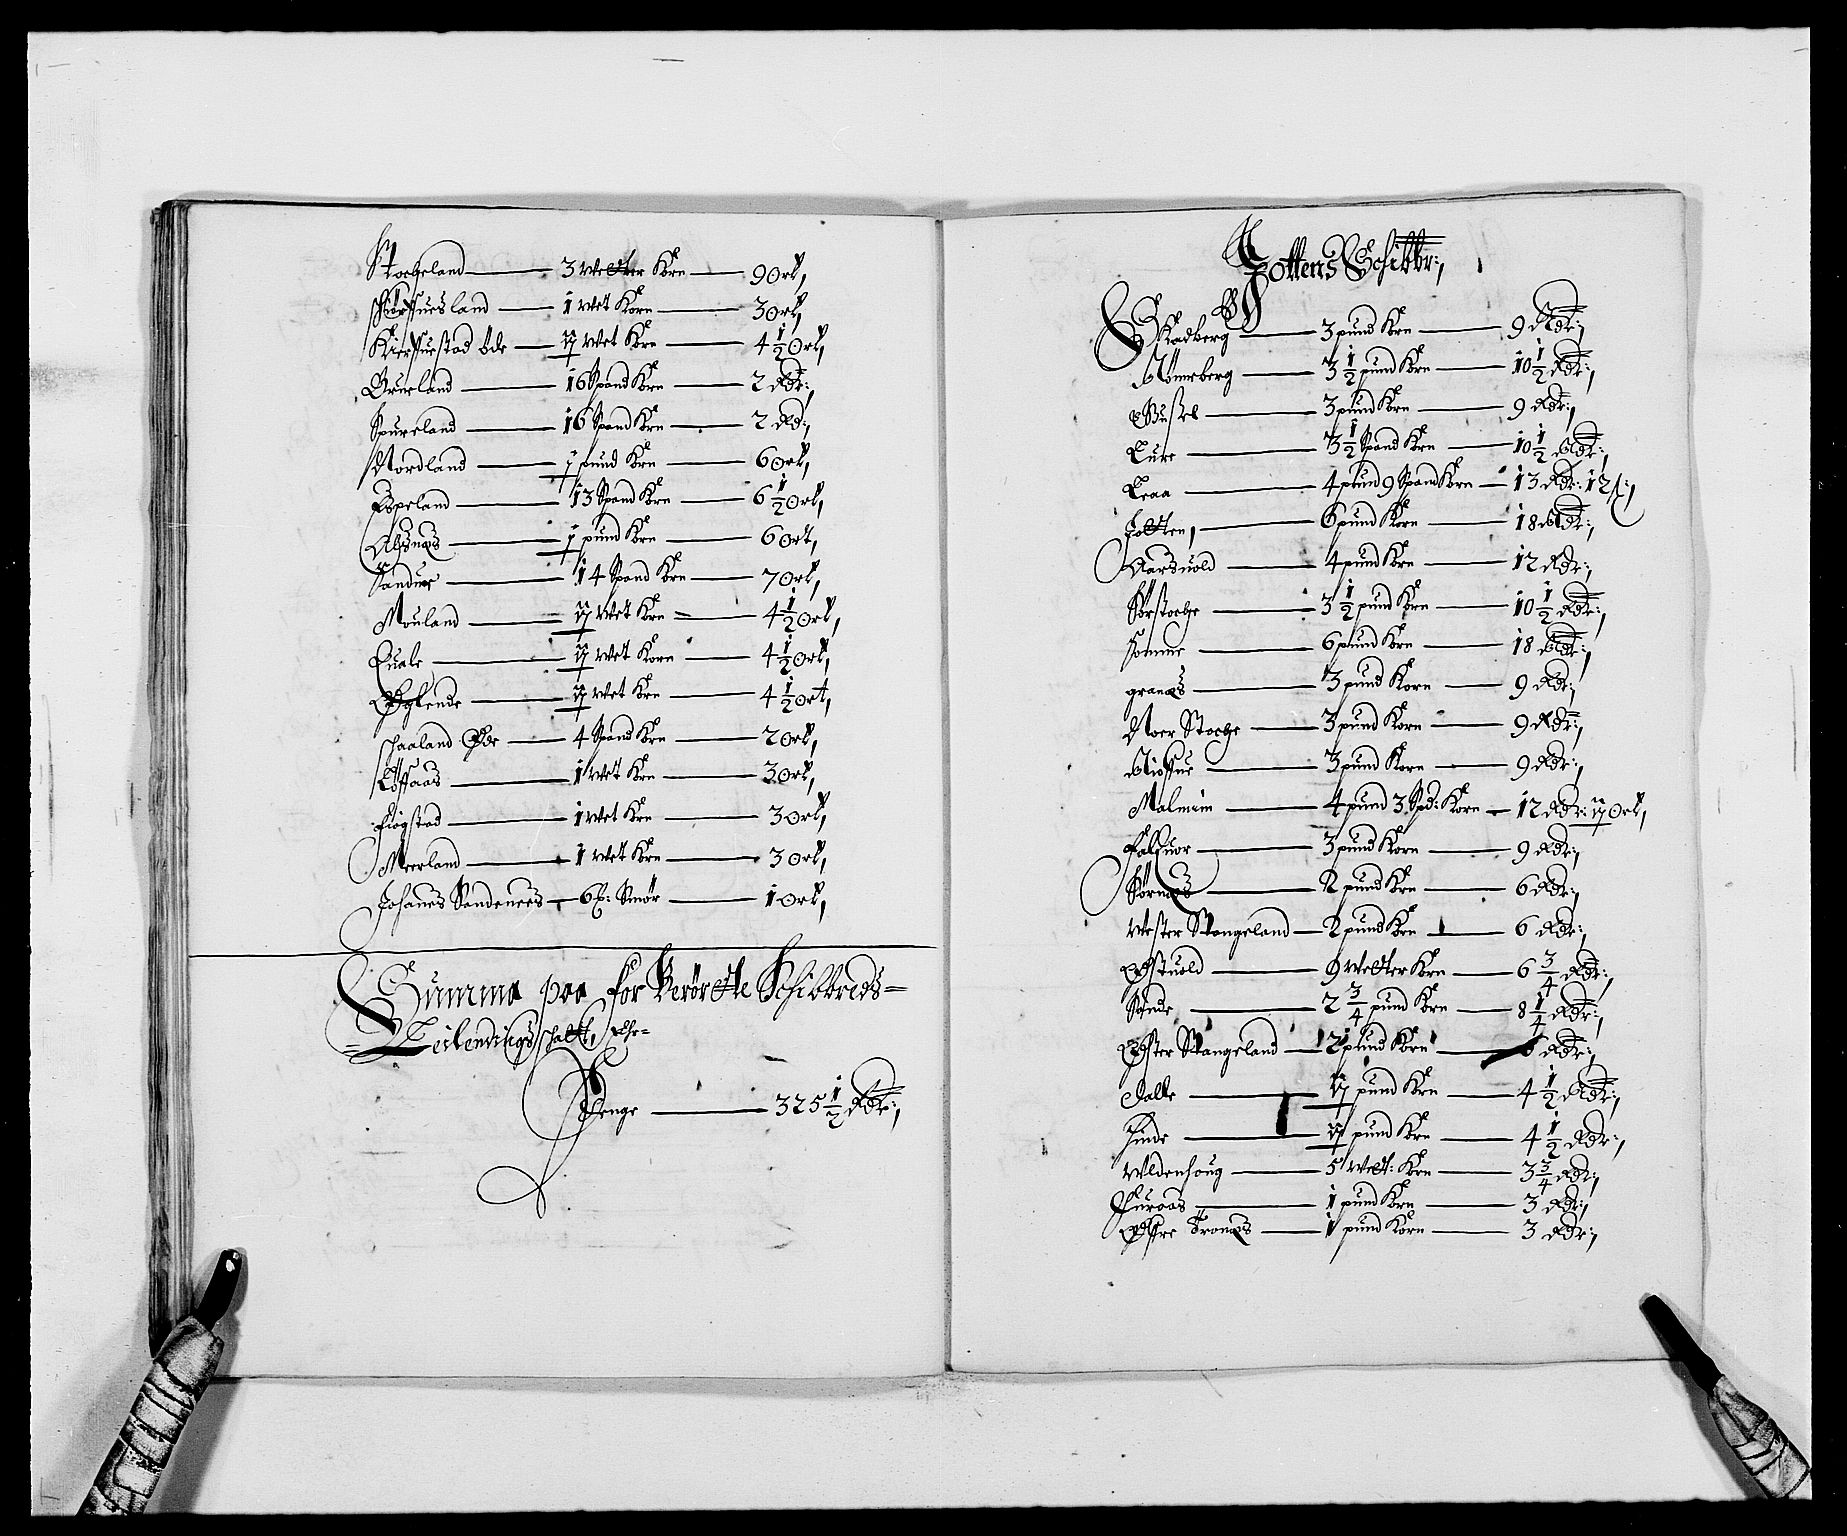 Stocheland — 3 Wetter Korn — 9 Ort,
— 1 Wet Korn — 3 Ort,
Øde — Wet Korn — 4 1/2 Ort,
Brueland — 16 Spand Korn — 2 Rdr:,
Spureland — 16 Spand Korn — 2 Rd:,
Nordland — pund Korn — 6 Ort,
Espeland — 13 Spand Korn — 6 1/2 Ort,
Alsnæs — pund Korn — 6 Ort,
Sandue — 14 Spand Korn — 7 Ort,
Mouland — Wet Korn — 4 1/2 Ort,
Quale — Wet Korn — 4 1/2 Ort,
— Wet Korn — 4 1/2 Ort,
Schaaland Øde — 4 Spand Korn — 2 Ort,
— 1 Wet Korn — 3 Ort,
Fiogstad — 1 Wet Korn — 3 Ort,
Meerland — 1 Wet Korn — 3 Ort,
Johanes Sandenees — 6 Smør — 1 Ort,
Summa paa for Berørtte Schibbreds=
Leilendings schatt, Ehr=
Penge — 325 1/2 Rdr:,
Jottens Schibbr:,
Schadberg — 3 pund Korn — 9 Rdr:,
Blomeberg — 3 1/2 pund Korn — 10 1/2 Rdr:,
— 3 pund Korn — 9 Rdr:,
Lure — 3 1/2 Spand Korn — 10 1/2 Rdr:,
Leaa — 4 pund 9 Spand Korn — 13 Rdr: 12 s:,
Jotten, — 6 pund Korn — 18 Rdr:,
Aarsuold — 4 pund Korn — 12 Rdr:,
Sørstoche — 3 1/2 pund Korn — 10 1/2 Rdr:,
Somme — 6 pund Korn — 18 Rdr:,
granæs — 3 pund Korn — 9 Rdr:,
Noer Stoche — 3 pund Korn — 9 Rdr:,
— 3 pund Korn — 9 Rdr:,
Malmim — 4 pund 3 Spd: Korn — 12 Rdr: Ort,
Foluor — 3 pund Korn — 9 Rdr:,
Sørnæs — 2 pund Korn — 6 Rdr:,
Wester Stangeland — 2 pund Korn — 6 Rdr:,
Østuold — 9 Wetter Korn — 6 3/4 Rdr:,
Sønde — 2 3/4 pund Korn — 8 1/4 Rdr:,
Øster Stangeland — 2 pund Korn — 6 Rdr:,
Dalle — pund Korn — 4 1/2 Rdr:,
Hinde — pund Korn — 4 1/2 Rdr:,
Wldenhoug — 5 Wett: Korn — 3 3/4 Rdr:,
Furaas — 1 pund Korn — 3 Rdr:,
Øfre Tronæs — 1 pund Korn — 3 Rdr:,